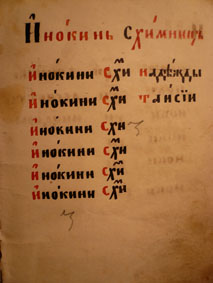 И҆но́кинь схи́мницъ
И҆но́кини схи надє́жды
И҆но́кини схи таи́сїи
И҆но́кини схи
И҆но́кини схи
И҆но́кини схи
И҆но́кини схи